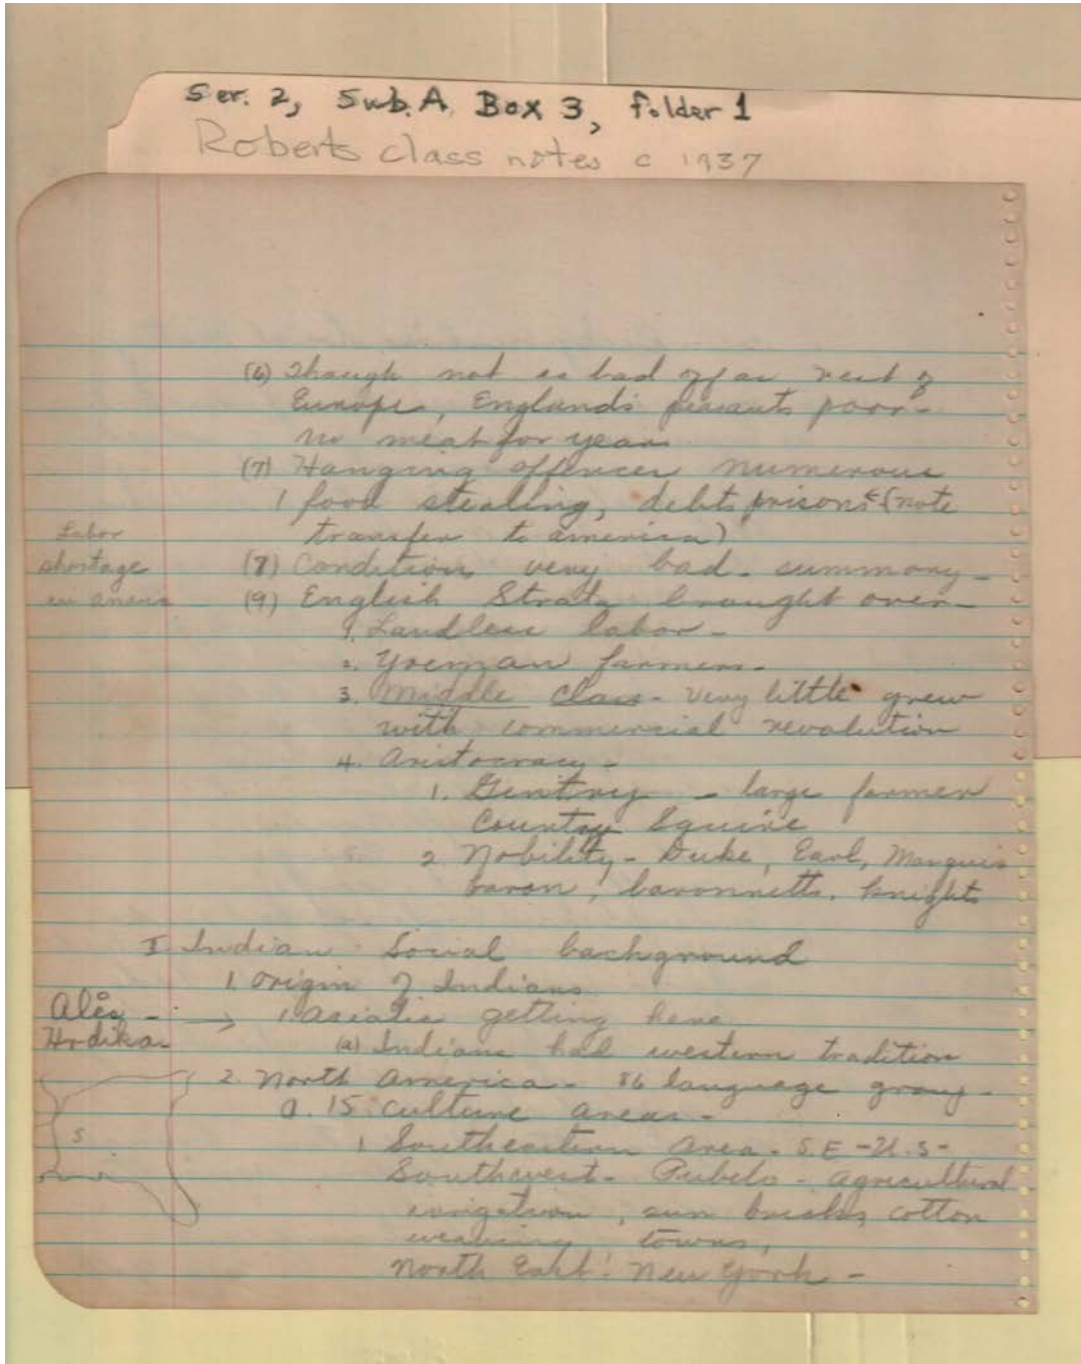 Ser. 2, Sub. A, Box 3, folder 1
Roberts class notes c 1937
(6) Though not as bad off as rest of
Europe, England's peasants poor-
no meat for years
(7) Hanging offences numerous
1 food stealing, debts prisons (note
transfer to america)
Labor
shortage
in
(8) Conditions very bad - summary -
(9) English Strata brought over -
1. Landless labor -
2. Yoeman farmers -
3. Middle Class - very little grew
with commercial revolution
4. Aristocracy -
1. Gentry - large farmer
Country Squire
2. Nobility - Duke, Earl, Marquis
baron, baronnetts, knights
I Indian Social background
1. Origin of Indians
Ales -
Hrdika -
→ 1. asiatic getting here
(a) Indians had western tradition
2. North America - 86 language group -
a. 15 culture areas -
S
1 Southeastern area - S.E - U.S -
Southwest - Pubelo - agricultural
irrigation, sun bricks, cotton
weaving towns,
North East: New York -